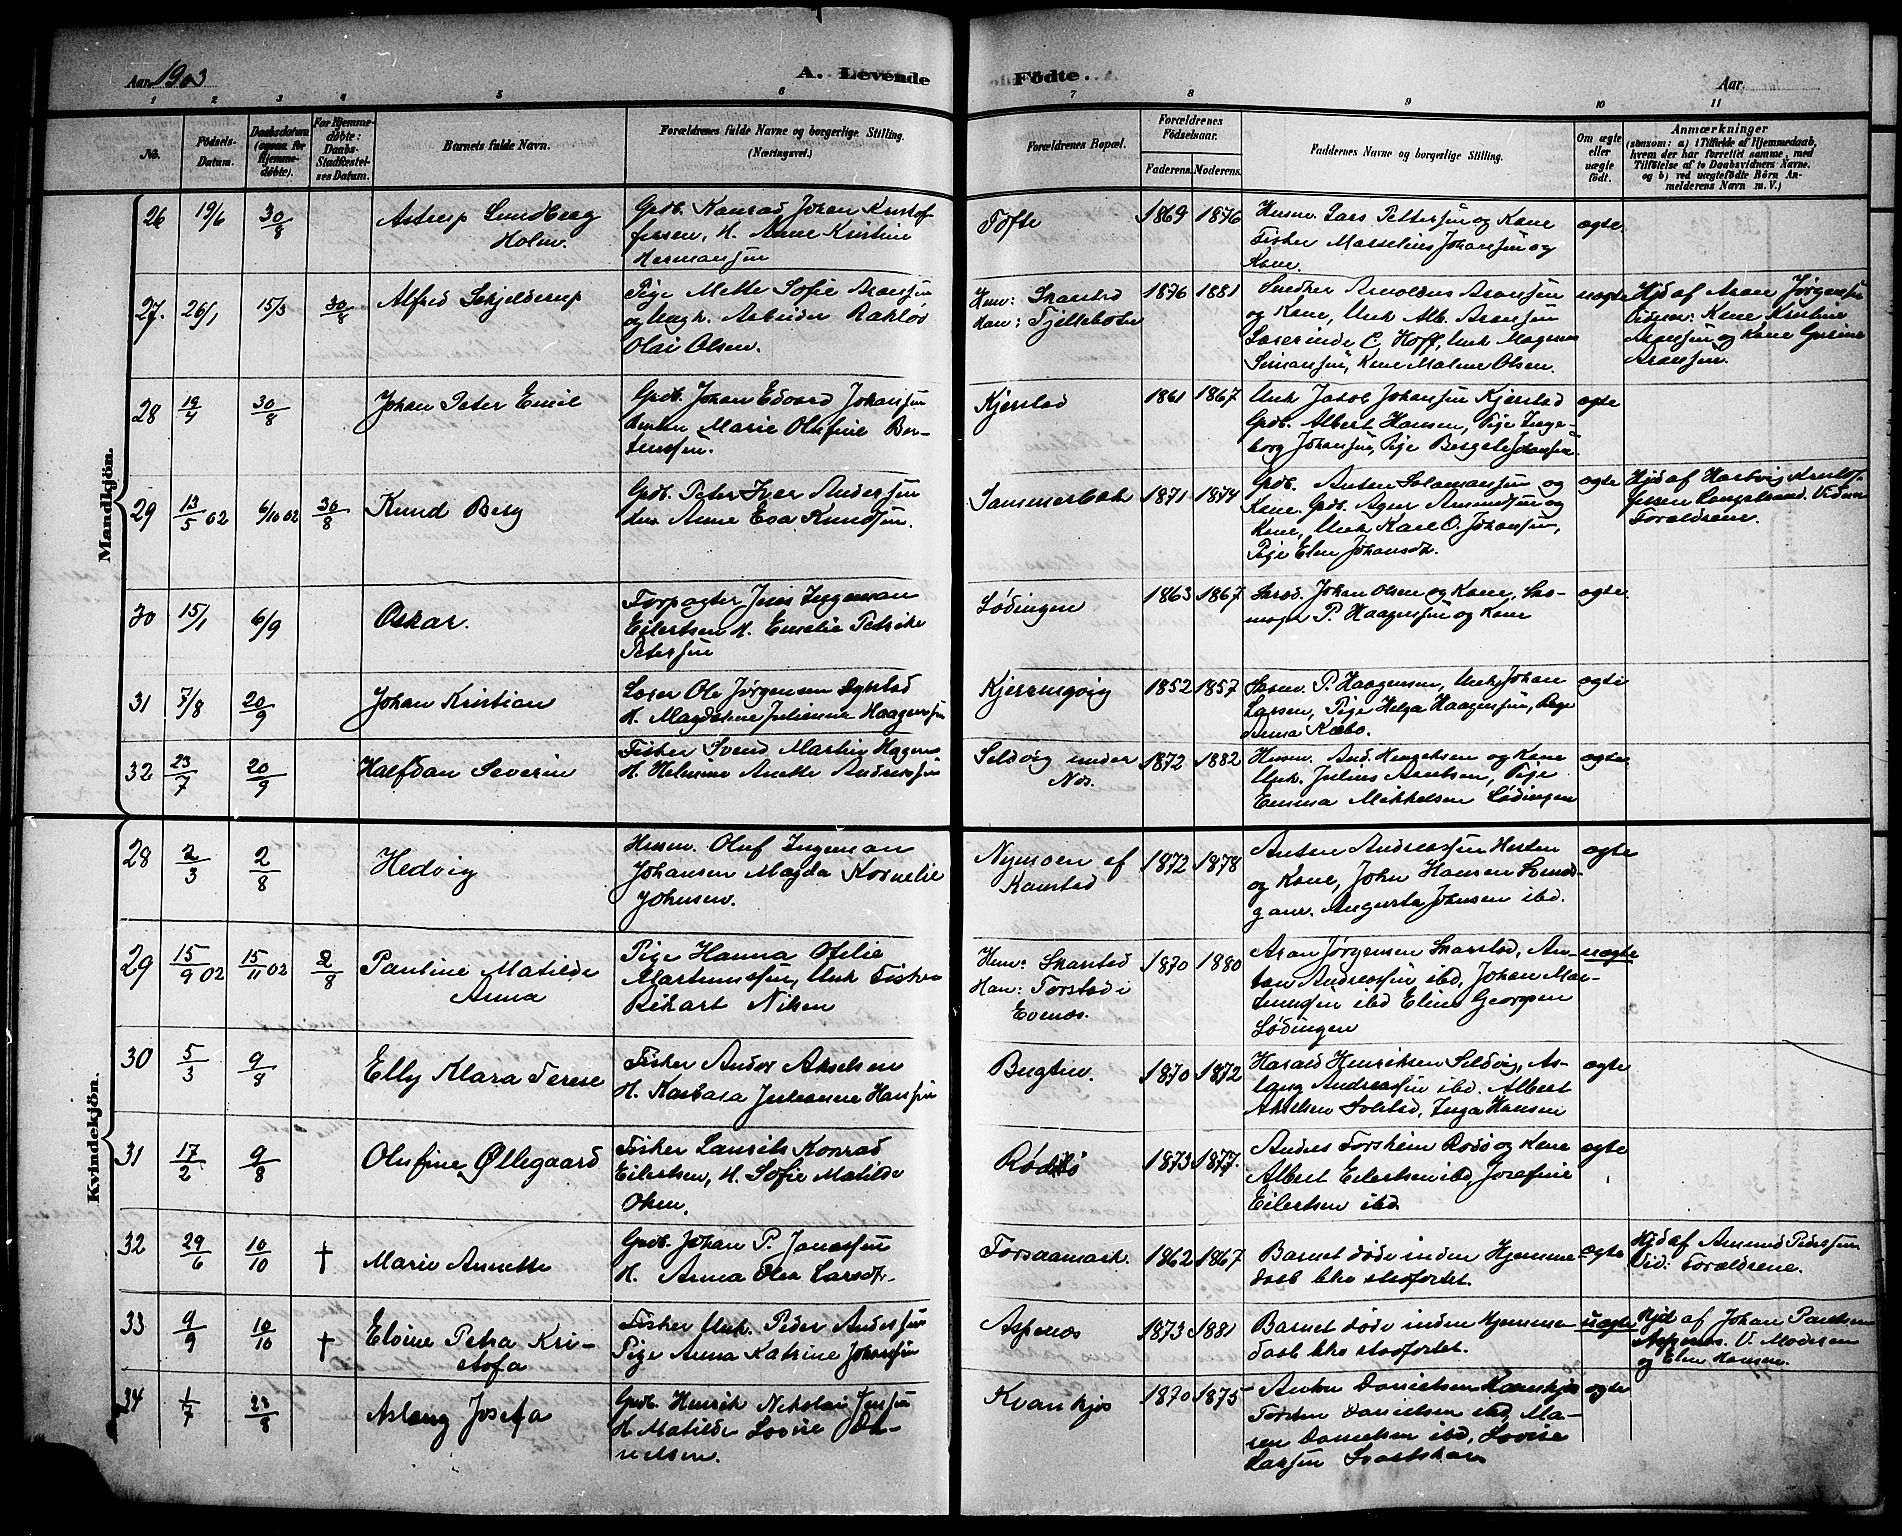 Aar 1903
A. Levende
Födte.
Aar.
1 2 3 4 5 6 7 8 9 10 11
No.
Födsels-
Datum.
Daabsdatum
(ogsaa for
Hjemme-
döbte).
For Hjemme-
döbte:
Daabs-
Stadfæstel-
ses Datum.
Barnets fulde Navn.
Forældrenes fulde Navne og borgerlige Stilling.
(Næringsvei.)
Forældrenes Bopæl.
Forældrenes
Födselsaar.
Faderens. Moderens.
Faddernes Navne og borgerlige Stilling.
Om ægte
eller
uægte
födt.
Anmærkninger
(saasom: a) i Tilfælde af Hjemmedaab,
hvem der har forrettet samme, med
Tilföielse af to Daabsvidners Navne.
og b) ved uægtefödte Börn An-
melderens Navn m. V.)
Mandkjön.
26 19/6 30/8
Astrup Lundberg
Holm.
Grdb. Konrad Johan Kristof
fersen, H. Anne Kristine
Hermansen
Tofte 1869 1876
Husm. Lars Pettersen og Kone
Fisker Marselius Johansen og
Kone.
ægte
27. 26/1 15/3 30/8
Alfred Schjelderup
Pige Mette Sofie Aronsen
og Ungk. Arbeider Rakløv
Olai Olsen.
Hun: Skarstad
Han: Fjelleboten
1876 1881
Snedker Arnoldus Aronsen
og Kone, Unk Alb. Aronsen
Lærerinde C. Hoff, Unk Magnus
Simonsen, Kone Maline Olsen.
uægte
Hjd af Aron Jørgensen
Vidner: Kone Kristine
Aronsen og Kone Gurine
Aronsen.
28 19/4 30/8
Johan Peter Emil
Grdb. Johan Edvard Johansen
Hustru Marie Olufine Ber-
tenssen.
Kjerstad 1861 1867
Unk Jakob Johansen Kjerstad
Grdb. Albert Hansen, Pige Inge-
borg Johansen, Pige Bergete Johansen
ægte
29 13/5 02 6/10 02 30/8
Knud Berg
Grdb. Peter Iver Andersen
Hus Anne Eva Knudsen.
Sammerbak 1871 1874
Grdb. Anton Salamonsen og
Kone. Grdb. Ager Amundsen og
Kone, Unk Karl O. Johansen,
Pige Elen Johansdt.
ægte
Hjd af Hartvig Kristof-
fersen Langstrand. Vidner
Forældrene.
30 15/1 6/9
Oskar.
Forpagter Jens Ingeman
Eilertsen H. Emelie Petrike
Petersen
Lødingen 1863 1867
Skræd. Johan Olsen og Kone, Sko-
mager P. Haagensen og Kone
ægte
31 7/8 20/9
Johan Kristian
Loser Ole Jørgensen Sykstad
H. Magdalene Julianne Haagensen
Kjerringvig 1852 1857
Skom. P. Haagensen, Unk Johan
Larsen, Pige Helga Haagensen, Pige
Anna Kæbo.
ægte
32 23/7 20/9
Halfdan Severin
Fisker Svend Martin Hagens
H. Helmine Anette Andreassen
Seldvig under
Nes.
1872 1882
Husm. And. Hingelsen og Kone
Unk. Julius Arntsen, Pige
Emma Mikkelsen Lødingen
ægte
Kvindekjön.
28 2/3 2/8
Hedvig
Husm. Oluf Ingeman
Johansen Magda Kornelie
Johnsen.
Nymoen af
Kanstad
1872 1878
Anton Andreassen Hesten
og Kone, John Hansen Strand-
gaar. Augusta Johnsen ibd.
ægte
29 15/9 02 15/11 02 2/8
Pauline Matilde
Anna
Pige Hanna Ofelie
Martinussen, Unk Fisker
Rikart Nilsen
Hun: Skarstad
Han: Forstad i
Evenæs.
1870 1880
Aron Jørgensen Skarstad, An-
ton Andreassen ibd, Johan Mar-
tinussen ibd Eline Georgsen
Lødingen
uægte
30 5/3 9/8
Elly Klara Terese
Fisker Andor Akselsen
H. Karbara Julianne Hansen
Bugten. 1870 1872
Harald Henriksen Seldvig, As-
laug Andreassen ibd. Albert
Akselsen Solstad, Inga Hansen
ægte
31 17/2 9/8
Olufine Øllegaard
Fisker Laurits Konrad
Eilertsen, H. Sofie Matilde
Olsen.
Rødsø 1873 1877.
Anders Forsheim Rødsø og Kone
Albert Eilertsen ibd, Josefine
Eilertsen ibd
ægte
32 29/6 10/10 †
Marie Annette
Grdb. Johan P. Jonassen
H. Anna Olea Larsdt.
Forsaamark. 1862 1867
Barnet døde inden Hjemme
daab blev stadfæstet.
ægte
Hjd af Amund Pedersen
Vid: Forældrene.
33 9/9 10/10 †
Elvine Petra Kri-
stofa
Fisker Unk. Peder Andersen
Pige Anna Katrine Johansen
Aspenæs 1873 1881
Barnet døde inden Hjemme
daab blev stadfæstet.
uægte
Hjd af Johan Paulsen
Aspenæs. V. Moderen
og Elen Hansen.
34 1/7 23/8
Aslaug Josefa
Grdb. Henrik Nikolai Jensen
H Matilde Lovise Da-
nielsen.
Kvankjos 1870 1875
Anton Danielsen Kvankjos
Torsten Danielsen ibd, Ma-
ren Danielsen ibd, Lovise
Larsen Svartskar
ægte